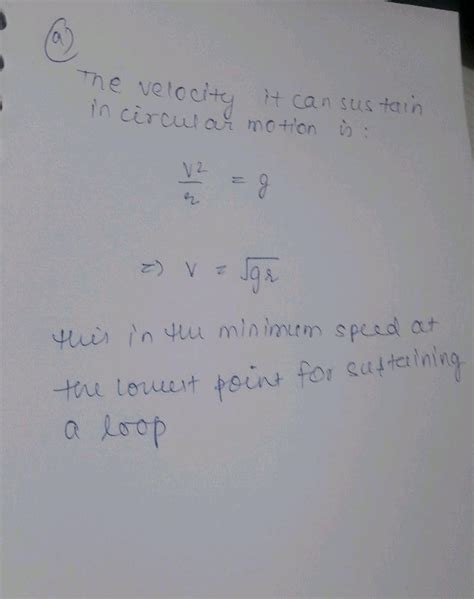 (a)
The velocity it can sustain
in circular motion is:
v²/r = g
=> v = √gr
this in the minimum speed at
the lowest point for sustaining
a loop